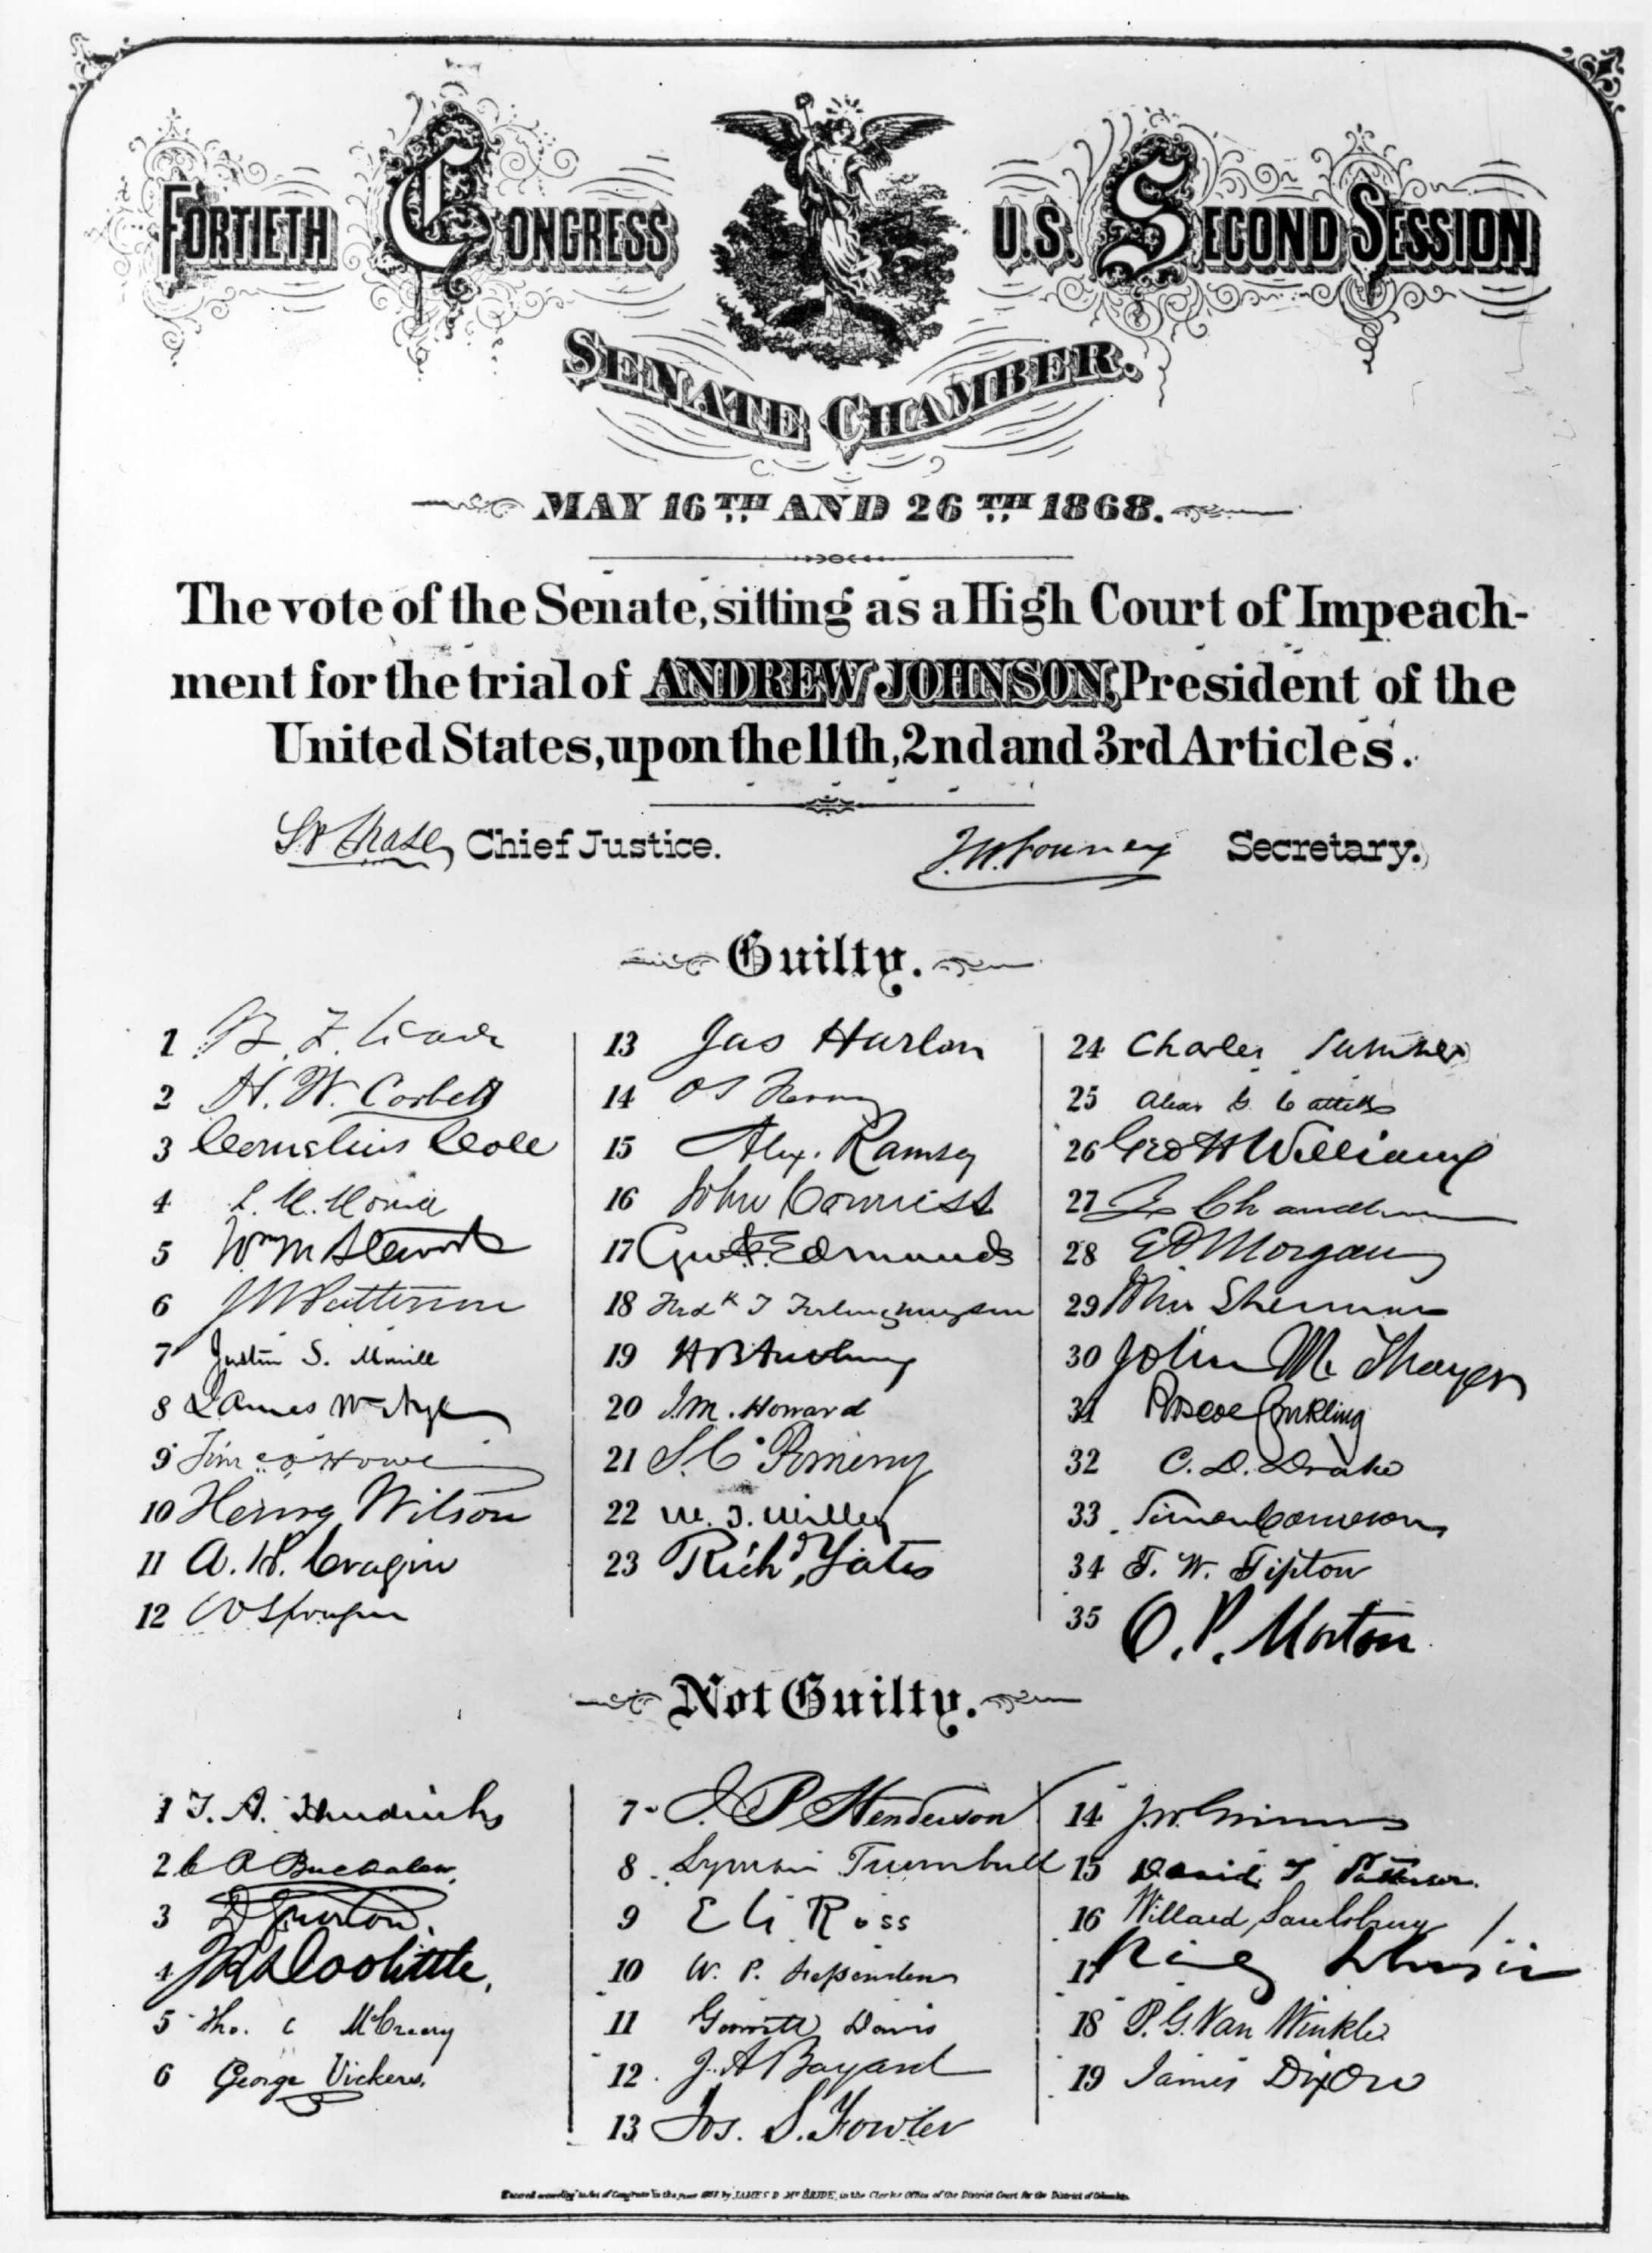 FORTIETH CONGRESS U.S. SECOND SESSION
SENATE CHAMBER.
MAY 16TH AND 26TH 1868.
The vote of the Senate, sitting as a High Court of Impeach-
ment for the trial of ANDREW JOHNSON, President of the
United States, upon the 11th, 2nd and 3rd Articles.
S P Chase, Chief Justice.
J. W. Forney Secretary.
Guilty.
1 B. F. Wade
2 H. W. Corbett
3 Cornelius Cole
4 L. M. Morrill
5 Wm M Stewart
6 J W Patterson
7 Justin S. Morrill
8 James W Nye
9 Tim O Howe
10 Henry Wilson
11 A. H. Cragin
12 W Sprague
13 Jas Harlan
14 O S Ferry
15 Alex. Ramsey
16 John Conness
17 Geo F. Edmunds
18 Fredk T Frelinghuysen
19 H B Anthony
20 J. M. Howard
21 S. C. Pomeroy
22 W. T. Willey
23 Richd Yates
24 Charles Sumner
25 Alex G Cattell
26 Geo H Williams
27 Z Chandler
28 E D Morgan
29 John Sherman
30 John M Thayer
31 Roscoe Conkling
32 C. D. Drake
33 Simon Cameron
34 T. W. Tipton
35 O. P. Morton
Not Guilty.
1 T. A. Hendricks
2 C R Buckalew
3 D S Norton.
4 J R Doolittle,
5 Tho. C McCreery
6 George Vickers.
7 J. B Henderson
8 Lyman Trumbull
9 E G Ross
10 W. P. Fessenden
11 Garrett Davis
12 J. A Bayard
13 Jos. S. Fowler
14 J. W. Grimes
15 David T Patterson.
16 Willard Saulsbury
17 Reverdy Johnson
18 P. G. Van Winkle
19 James Dixon
Entered according to Act of Congress in the year by JAMES D. McBRIDE, in the Clerks Office of the District Court for the District of Columbia.